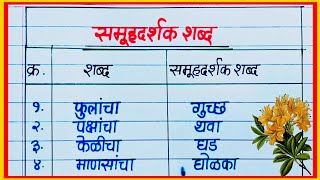 समूहदर्शक शब्द
क्र. शब्द समूहदर्शक शब्द
१. फुलांचा गुच्छ
२. पक्षांचा थवा
३. केळीचा घड
४. माणसांचा घोळका